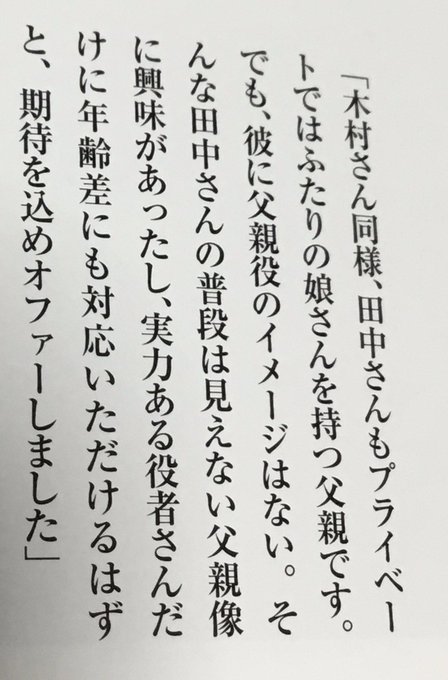 「木村さん同様、田中さんもプライベー
トではふたりの娘さんを持つ父親です。
でも、彼に父親役のイメージはない。そ
んな田中さんの普段は見えない父親像
に興味があったし、実力ある役者さんだ
けに年齢差にも対応いただけるはず
と、期待を込めオファーしました」